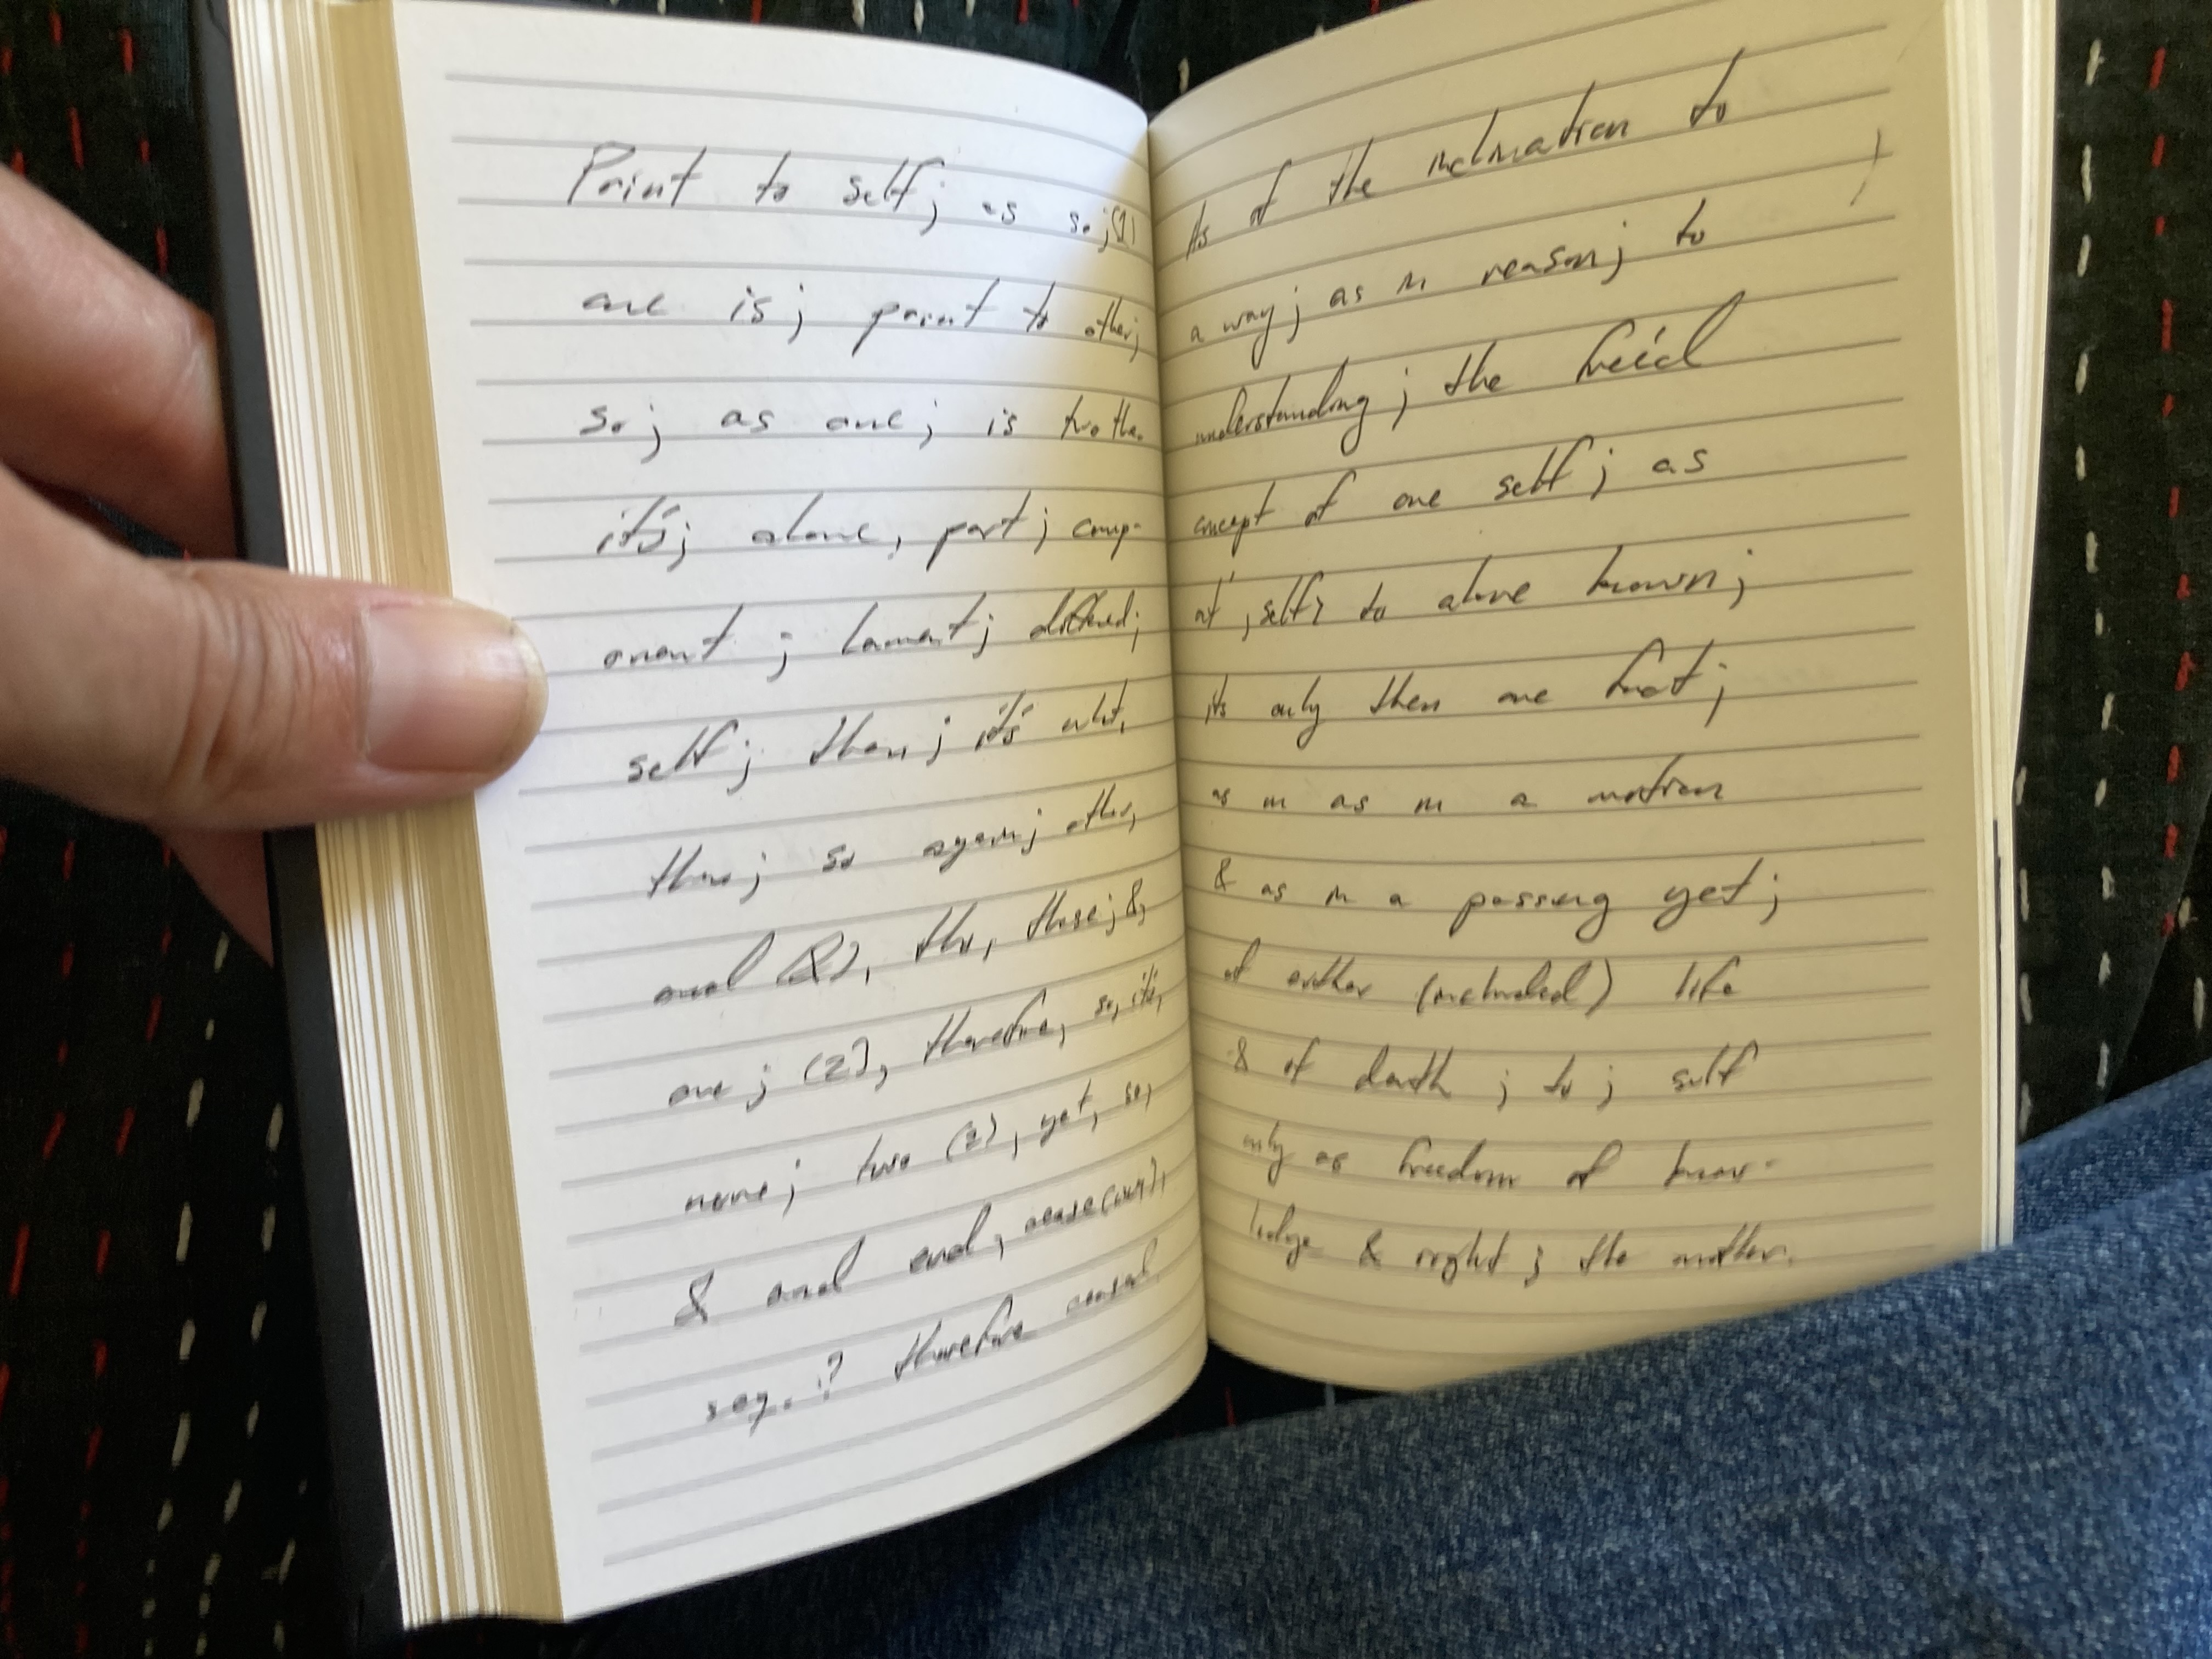 Print to self; as so; (1)
one is; print to other;
so; as one; is two the.
it's; alone, part; comp-
onent; lament; defined;
self; then; it's what,
then; so again; other,
and (&), the, these; &,
one; (2), therefore, so, it's,
none; two (2), yet, so,
& and end, cease
say.? therefore
Its of the inclination to
a way; as in reason; to
understanding; the free'd
concept of one self; as
at, self, to alone known;
its only then one fact;
as in as in a motion
& as in a passing yet;
of either (included) life
& of death; to; self
only as freedom of know-
ledge & right; the